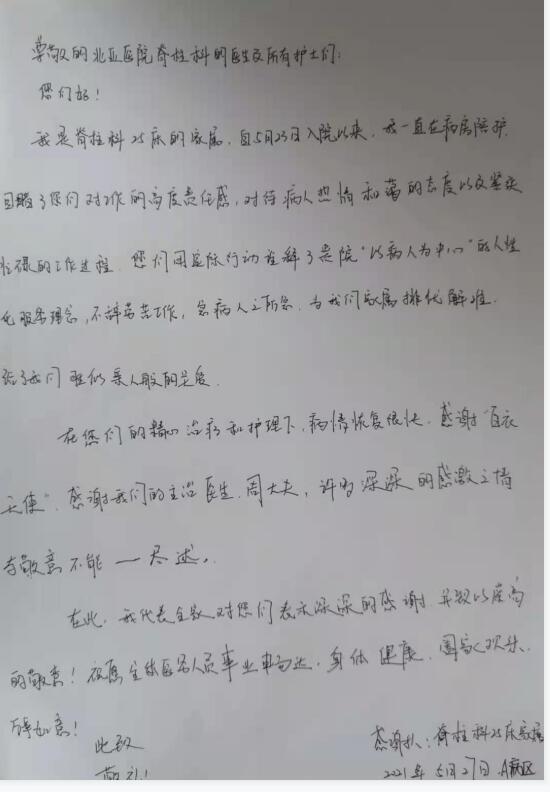 尊敬的北亚医院脊柱科的医生及所有护士们:
您们好!
我是脊柱科25床的家属,自5月23日入院以来,我一直在病房陪护,
目睹了你们对工作的高度责任感,对待病人热情和蔼的态度以及紧张
忙碌的工作进程.您们用实际行动诠释了贵院"以病人为中心"的人性
化服务理念,不辞劳苦工作,急病人之所急.为我们家属排忧解难.
给了我们胜似亲人般的关爱.
在您们的精心治疗和护理下,病情恢复很快.感谢"白衣
天使".感谢我们的主治医生.周大夫,许多深深的感激之情
与敬意不能一一尽述.
在此,我代表全家对您们表示深深的感谢.并致以崇高
的敬意!祝愿全体医务人员事业中,身体健康.阖家欢乐.
万事如意!
此致
敬礼!
感谢人:脊柱科25床家属
2021年5月27日.A病区